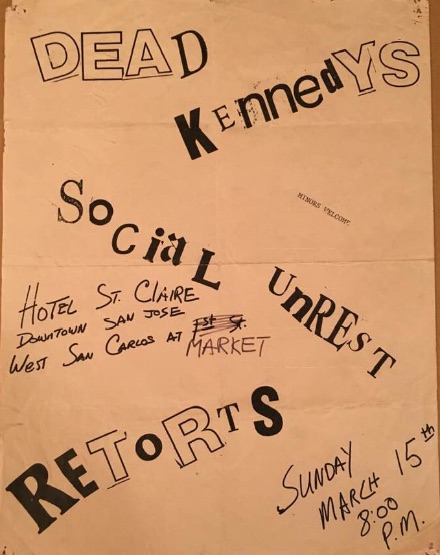 DEAD
KennedYS
MINORS WELCOME
SoCiaL
UnREsT
HOTEL ST. CLAIRE
DOWNTOWN SAN JOSE
WEST SAN CARLOS AT 1st St.
MARKET
RETORTS
SUNDAY
MARCH 15th
8:00
P.M.